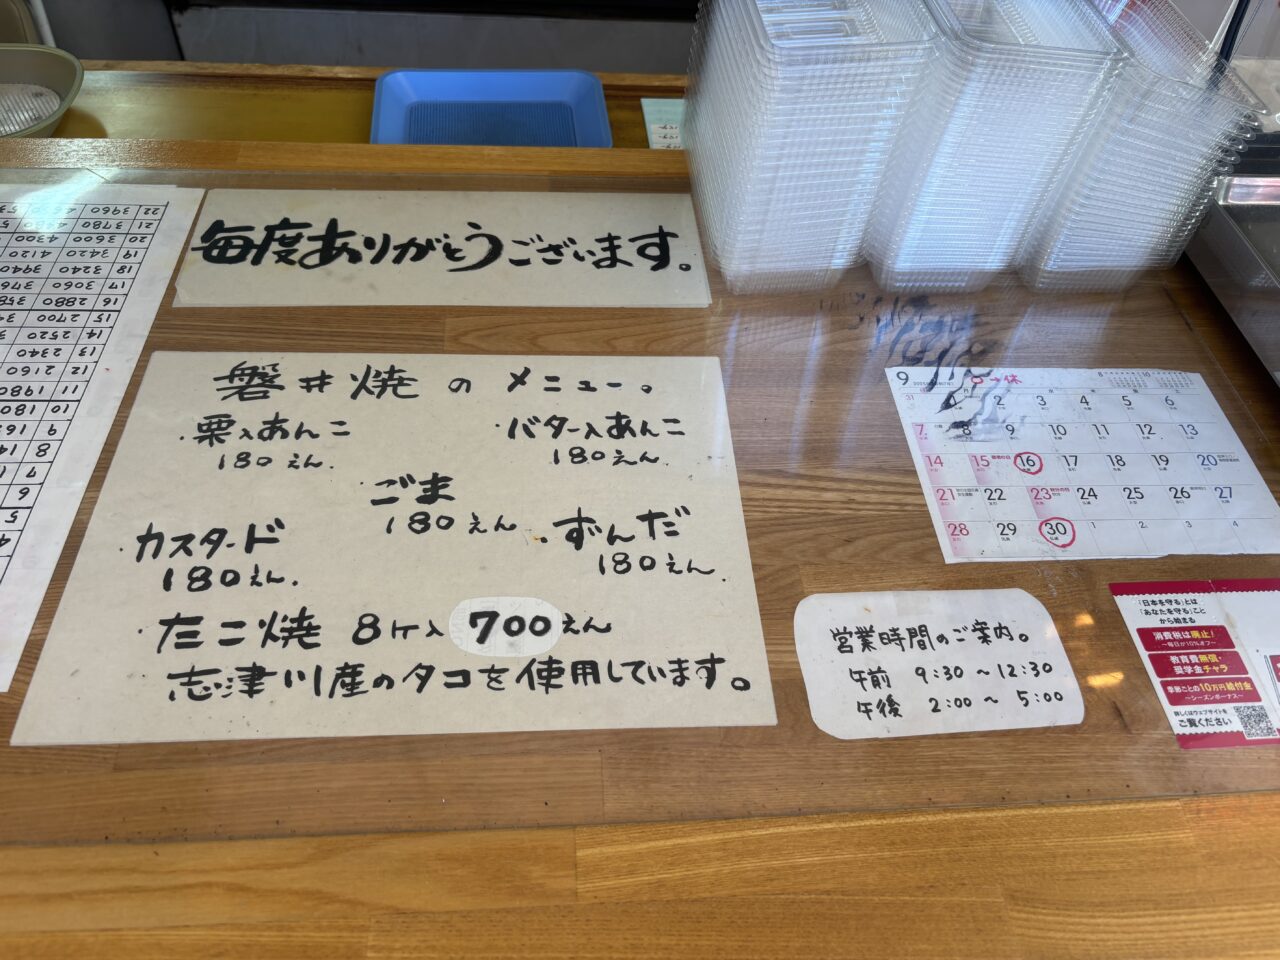 毎度ありがとうございます。
磐井焼のメニュー。
・栗入あんこ
180えん.
・バター入あんこ
180えん.
・ごま
180えん
・カスタード
180えん.
・ずんだ
180えん.
・たこ焼 8ケ入 700えん
志津川産のタコを使用しています。
営業時間のご案内。
午前 9:30〜12:30
午後 2:00〜5:00
9
○→休
31 1 2 3 4 5 6
7 8 9 10 11 12 13
14 15 16 17 18 19 20
21 22 23 24 25 26 27
28 29 30 1 2 3 4
「日本を守る」とは
「あなたを守る」こと
から始まる
消費税は廃止!
教育費無償・
奨学金チャラ
季節ごとの10万円給付金
〜シーズンボーナス〜
詳しくはウェブサイトを
ご覧ください
22 3960
21 3780
20 3600
19 3420
18 3240
17 3060
16 2880
15 2700
14 2520
13 2340
12 2160
11 1980
10
9
8
7
6
5